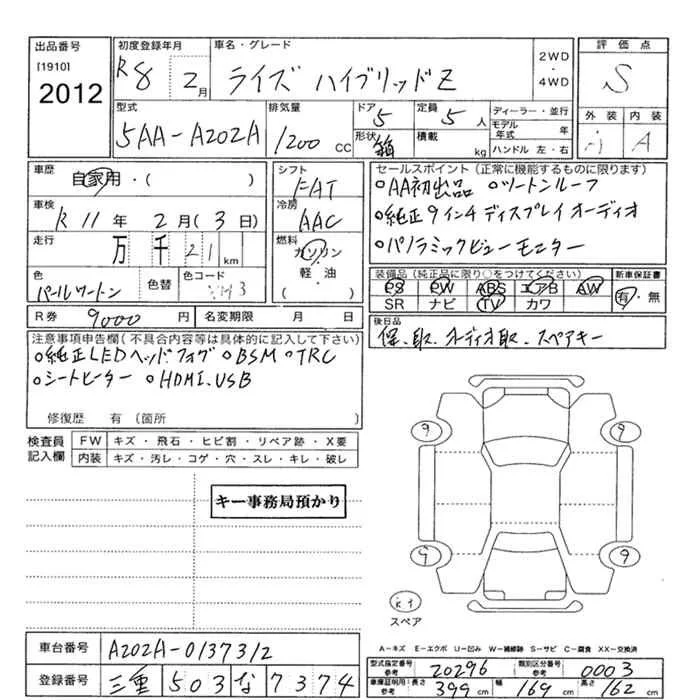 出品番号
[1910]
2012
初度登録年月
R8 2月
車名・グレード
ライズ ハイブリッドZ
2WD
・
4WD
評価点
S
外装 内装
A
型式
5AA-A202A
排気量
1200 CC
ドア
5
形状
箱
定員
5人
積載
kg
ディーラー・並行
モデル年式 年
ハンドル 左・右
車歴
自家用・( )
車検
R 11年 2月(3日)
走行
万 千 21 km
色
パールツートン
色替
色コード
シフト
FAT
冷房
AAC
燃料
ガソリン
軽・油
( )
セールスポイント(正常に機能するものに限ります)
○AA初出品 ○ツートンルーフ
○純正9インチディスプレイオーディオ
○パノラミックビューモニター
装備品(純正品に限り○をつけてください)
PS PW ABS エアB AW
SR ナビ TV カワ
新車保証書
有・無
R券 9000円
名変期限 月 日
後日品
保、取、オーディオ取、スペアキー
注意事項申告欄(不具合内容等は具体的に記入して下さい)
○純正LEDヘッドフォグ ○BSM ○TRC
○シートヒーター ○HDMI、USB
修復歴 有(箇所 )
検査員記入欄
FW キズ・飛石・ヒビ割・リペア跡・X要
内装 キズ・汚レ・コゲ・穴・スレ・キレ・破レ
キー事務局預かり
9 9
9 9
スペア
A-キズ E-エクボ U-凹み W-補修跡 S-サビ C-腐食 XX-交換済
車台番号 A202A-0137312
登録番号 三重 503 な 7374
型式指定番号 参考 20296
類別区分番号 参考 0003
車庫証明用:長さ 参考 399cm 幅 169cm 高さ 162cm